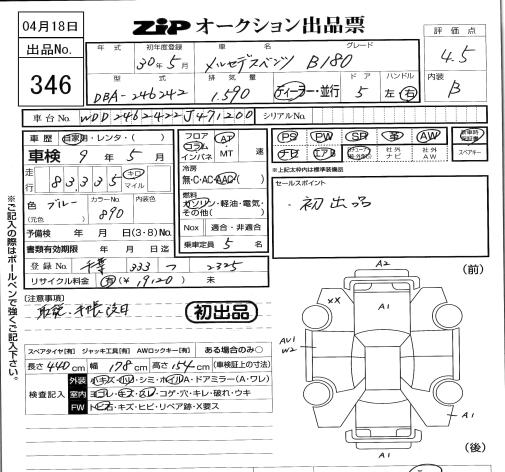 04月18日
ZiP オークション出品票
出品No.
346
年式 初年度登録 車名 グレード
30年5月 メルセデスベンツ B180
型式 排気量 ドア ハンドル
DBA-246242 1.590 ディーラー・並行 5 左 右
評価点
4.5
内装
B
車台No. WDD2462422J471200 シリアルNo.
車歴 自家用・レンタ・( )
車検 9年5月
走行 83,335 キロ マイル
色 ブルー カラーNo. 890 内装色
(元色)
予備検 年 月 日(3・8)No.
書類有効期限 年 月 日迄
登録No. 千葉 333 つ 2325
リサイクル料金 有(¥ 19120 ) 未
フロア コラム インパネ AT MT 速
冷房
無・C・AC・AAC( )
燃料
ガソリン・軽油・電気・その他( )
Nox 適合・非適合
乗車定員 5 名
PS PW SR 革 AW 新車時保証書
ナビ エアB 社外ナビ 社外AW スペアキー
※上記太枠内は標準装備品
セールスポイント
・初出品
(注意事項)
初出品
スペアタイヤ[有] ジャッキ工具[有] AWロックキー[有] ある場合のみ○
長さ 440 cm 幅 178 cm 高さ 154 cm (車検証上の寸法)
検査記入
外装 小キズ・小凹・シミ・ホイルA・ドアミラー(A・ワレ)
室内 ヨゴレ・キズ・スレ・コゲ・穴・キレ・破れ・ウキ
FW トビ石・キズ・ヒビ・リペア跡・X要ス
※ご記入の際はボールペンで強くご記入下さい。
A2 (前)
XX A1
AU1
W2
A1
A1 (後)